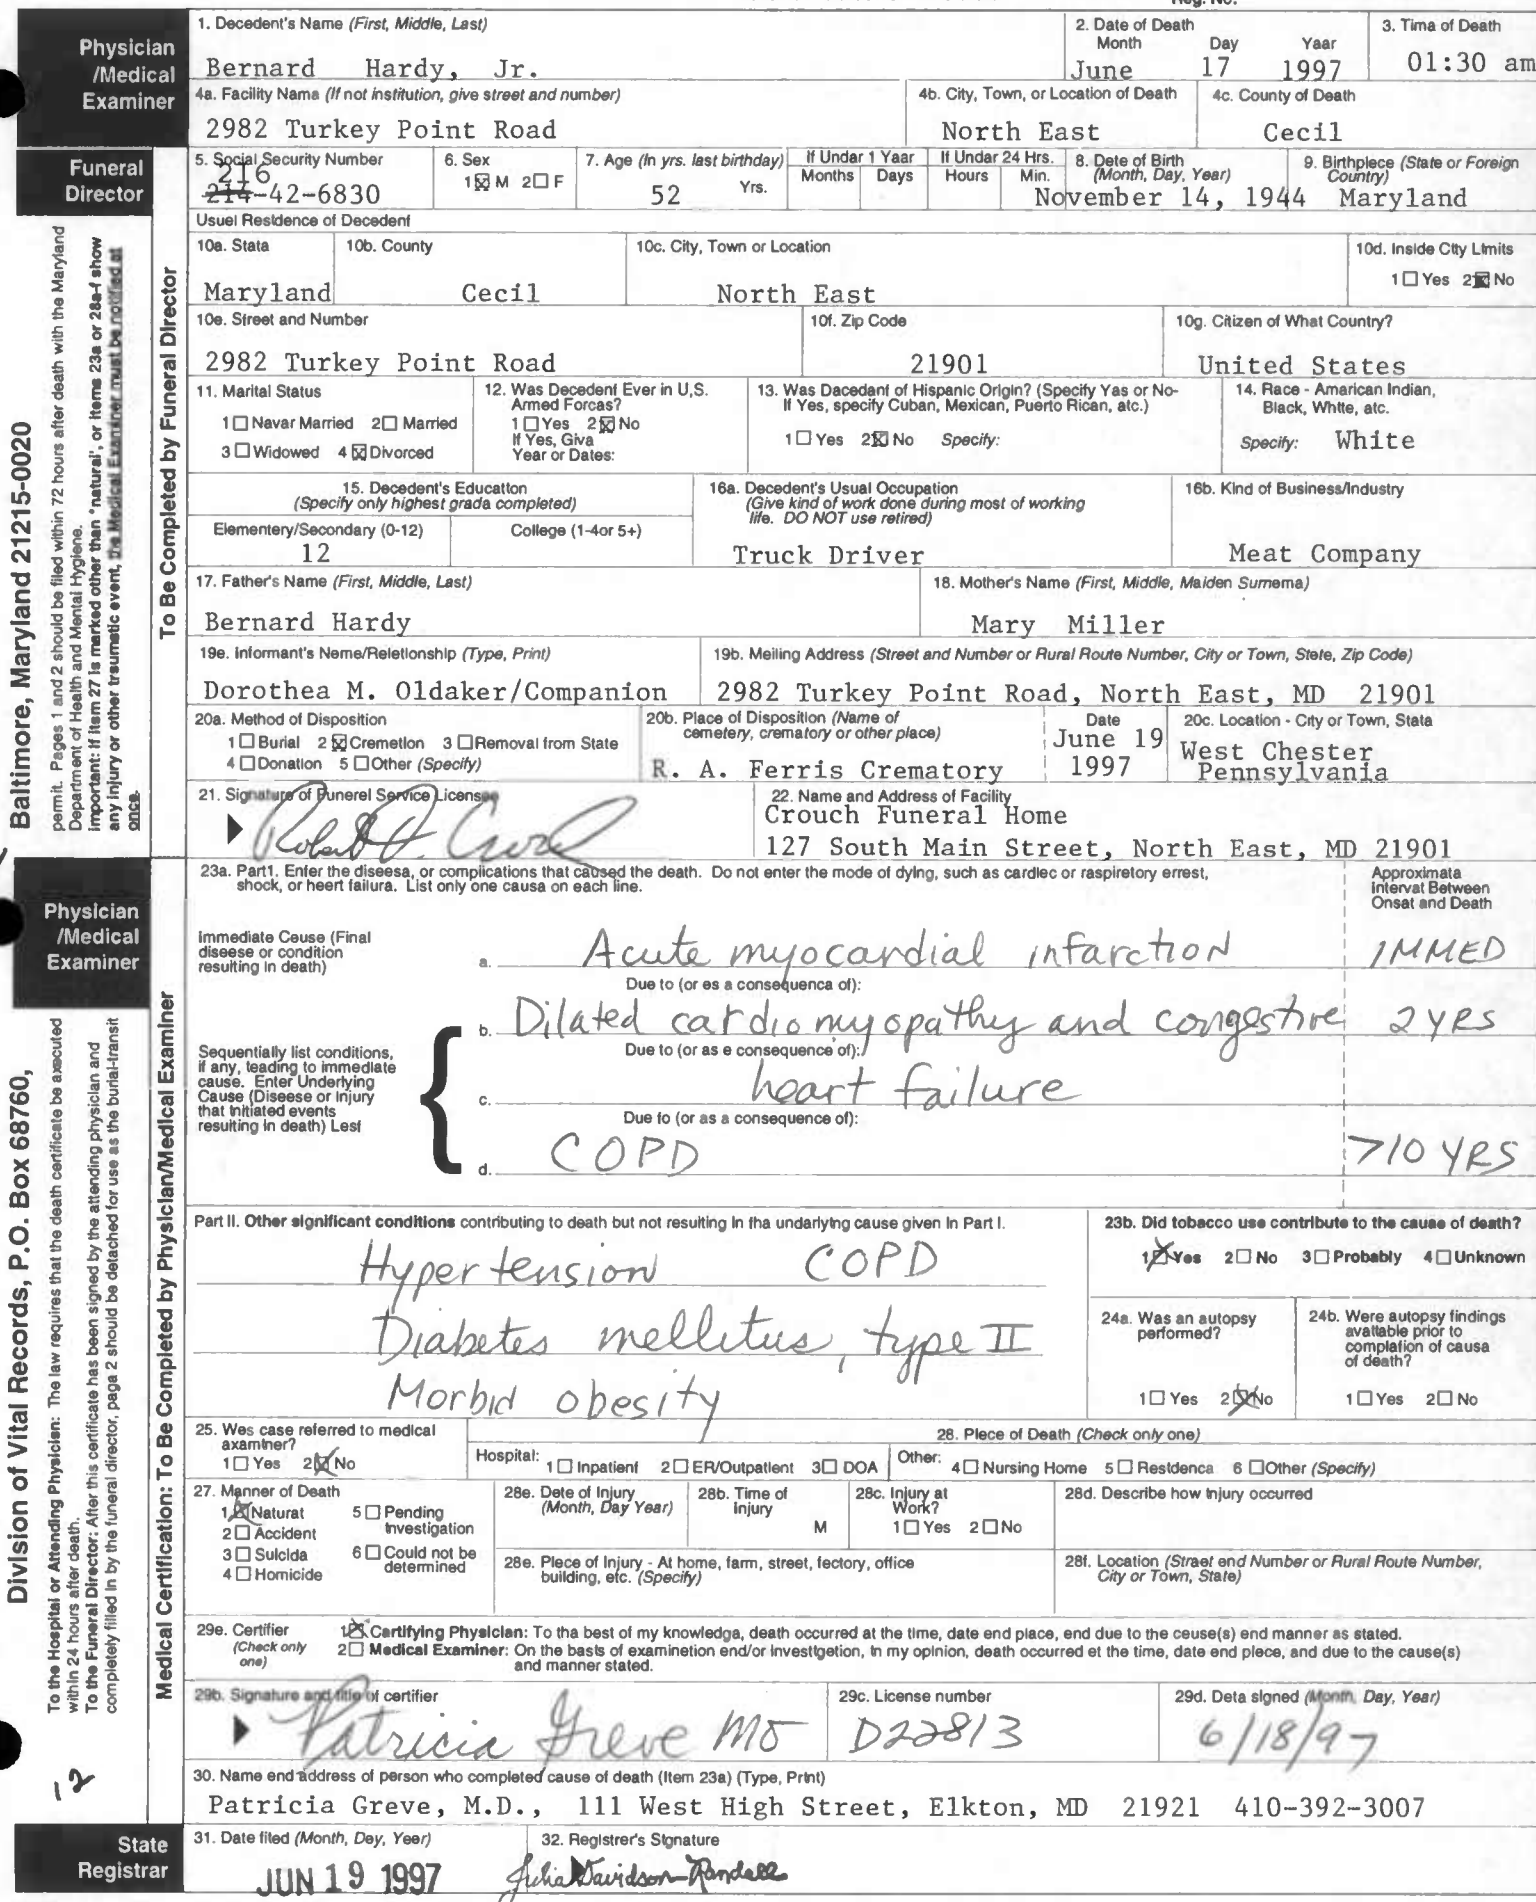 Reg. No.
Physician
/Medical
Examiner
1. Decedent's Name (First, Middle, Last)
Bernard Hardy, Jr.
2. Date of Death
Month Day Yaar
June 17 1997
3. Tima of Death
01:30 am
4a. Facility Name (If not institution, give street and number)
2982 Turkey Point Road
4b. City, Town, or Location of Death
North East
4c. County of Death
Cecil
Funeral
Director
5. Social Security Number
216
214-42-6830
6. Sex
1☒ M 2☐ F
7. Age (In yrs. last birthday)
52 Yrs.
If Under 1 Yaar
Months Days
If Under 24 Hrs.
Hours Min.
8. Dete of Birth
(Month, Day, Year)
November 14, 1944
9. Birthplece (State or Foreign
Country)
Maryland
Usuel Residence of Decedent
10a. Stata
Maryland
10b. County
Cecil
10c. City, Town or Location
North East
10d. Inside City Limits
1☐ Yes 2☒ No
10e. Street and Number
2982 Turkey Point Road
10f. Zip Code
21901
10g. Citizen of What Country?
United States
11. Marital Status
1☐ Navar Married 2☐ Married
3☐ Widowed 4☒ Divorced
12. Was Decedent Ever in U.S.
Armed Forcas?
1☐ Yes 2☒ No
If Yes, Giva
Year or Dates:
13. Was Dacedant of Hispanic Origin? (Specify Yas or No-
If Yes, specify Cuban, Mexican, Puerto Rican, atc.)
1☐ Yes 2☒ No Specify:
14. Race - Amarican Indian,
Black, White, atc.
Specify: White
15. Decedent's Education
(Specify only highest grada completed)
Elementery/Secondary (0-12)
12
College (1-4or 5+)
16a. Decedent's Usual Occupation
(Give kind of work done during most of working
life. DO NOT use retired)
Truck Driver
16b. Kind of Business/Industry
Meat Company
17. Father's Name (First, Middle, Last)
Bernard Hardy
18. Mother's Name (First, Middle, Maiden Surnema)
Mary Miller
19e. Informant's Neme/Reletionship (Type, Print)
Dorothea M. Oldaker/Companion
19b. Meiling Address (Street and Number or Rural Route Number, City or Town, Stete, Zip Code)
2982 Turkey Point Road, North East, MD 21901
20a. Method of Disposition
1☐ Burial 2☒ Cremetion 3☐ Removal from State
4☐ Donation 5☐ Other (Specify)
20b. Place of Disposition (Name of
cemetery, crematory or other place)
R. A. Ferris Crematory
Date
June 19
1997
20c. Location - City or Town, Stata
West Chester
Pennsylvania
21. Signature of Funerel Service Licensee
22. Name and Address of Facility
Crouch Funeral Home
127 South Main Street, North East, MD 21901
To Be Completed by Funeral Director
Baltimore, Maryland 21215-0020
permit. Pages 1 and 2 should be filed within 72 hours after death with the Maryland
Department of Health and Mental Hygiene.
Important: If item 27 is marked other than "natural", or items 23a or 28a-f show
any injury or other treumatic event, the Medical Examiner must be notified at
once.
Physician
/Medical
Examiner
23a. Part1. Enter the diseesa, or complications that caused the death. Do not enter the mode of dying, such as cardiec or raspiretory errest,
shock, or heert failura. List only one causa on each line.
Approximata
Interval Between
Onsat and Death
Immediate Ceuse (Final
diseese or condition
resulting in death)
a. Acute myocardial infarction IMMED
Due to (or es a consequenca of):
b. Dilated cardiomyopathy and congestive 2 YRS
Due to (or as e consequence of):
Sequentially list conditions,
if any, leading to immediate
cause. Enter Underlying
Cause (Diseese or Injury
that initiated events
resulting in death) Last
c. heart failure
Due to (or as a consequence of):
d. COPD >10 YRS
Part II. Other significant conditions contributing to death but not resulting in tha undarlying cause given in Part I.
Hypertension COPD
Diabetes mellitus, type II
Morbid obesity
23b. Did tobacco use contribute to the cause of death?
1☒ Yes 2☐ No 3☐ Probably 4☐ Unknown
24a. Was an autopsy
performed?
1☐ Yes 2☒ No
24b. Were autopsy findings
available prior to
complation of causa
of death?
1☐ Yes 2☐ No
25. Wes case referred to medical
axaminer?
1☐ Yes 2☒ No
28. Plece of Death (Check only one)
Hospital: 1☐ Inpatient 2☐ ER/Outpatient 3☐ DOA Other: 4☐ Nursing Home 5☐ Restdenca 6☐ Other (Specify)
27. Manner of Death
1☒ Natural 5☐ Pending
Investigation
2☐ Accident
3☐ Suicida 6☐ Could not be
determined
4☐ Homicide
28e. Date of Injury
(Month, Day Year)
28b. Time of
Injury
M
28c. Injury at
Work?
1☐ Yes 2☐ No
28d. Describe how injury occurred
28e. Plece of Injury - At home, farm, street, fectory, office
building, etc. (Specify)
28f. Location (Street end Number or Rural Route Number,
City or Town, State)
29e. Certifier
(Check only
one)
1☒ Certifying Physician: To tha best of my knowledga, death occurred at the time, date end place, end due to the ceuse(s) end manner as stated.
2☐ Medical Examiner: On the basis of examinetion end/or investigetion, in my opinion, death occurred et the time, date end plece, and due to the cause(s)
and manner stated.
29b. Signature and title of certifier
Patricia Greve MD
29c. License number
D22813
29d. Deta signed (Month, Day, Year)
6/18/97
30. Name end address of person who completed cause of death (Item 23a) (Type, Print)
Patricia Greve, M.D., 111 West High Street, Elkton, MD 21921 410-392-3007
Medical Certification: To Be Completed by Physician/Medical Examiner
Division of Vital Records, P.O. Box 68760,
To the Hospital or Attending Physician: The law requires that the death certificate be executed
within 24 hours after death.
To the Funeral Director: After this certificate has been signed by the attending physician and
completely filled in by the funeral director, paga 2 should be detached for use as the burial-transit
12
State
Registrar
31. Date filed (Month, Dey, Yeer)
JUN 19 1997
32. Registrer's Signature
Julia Davidson-Randall